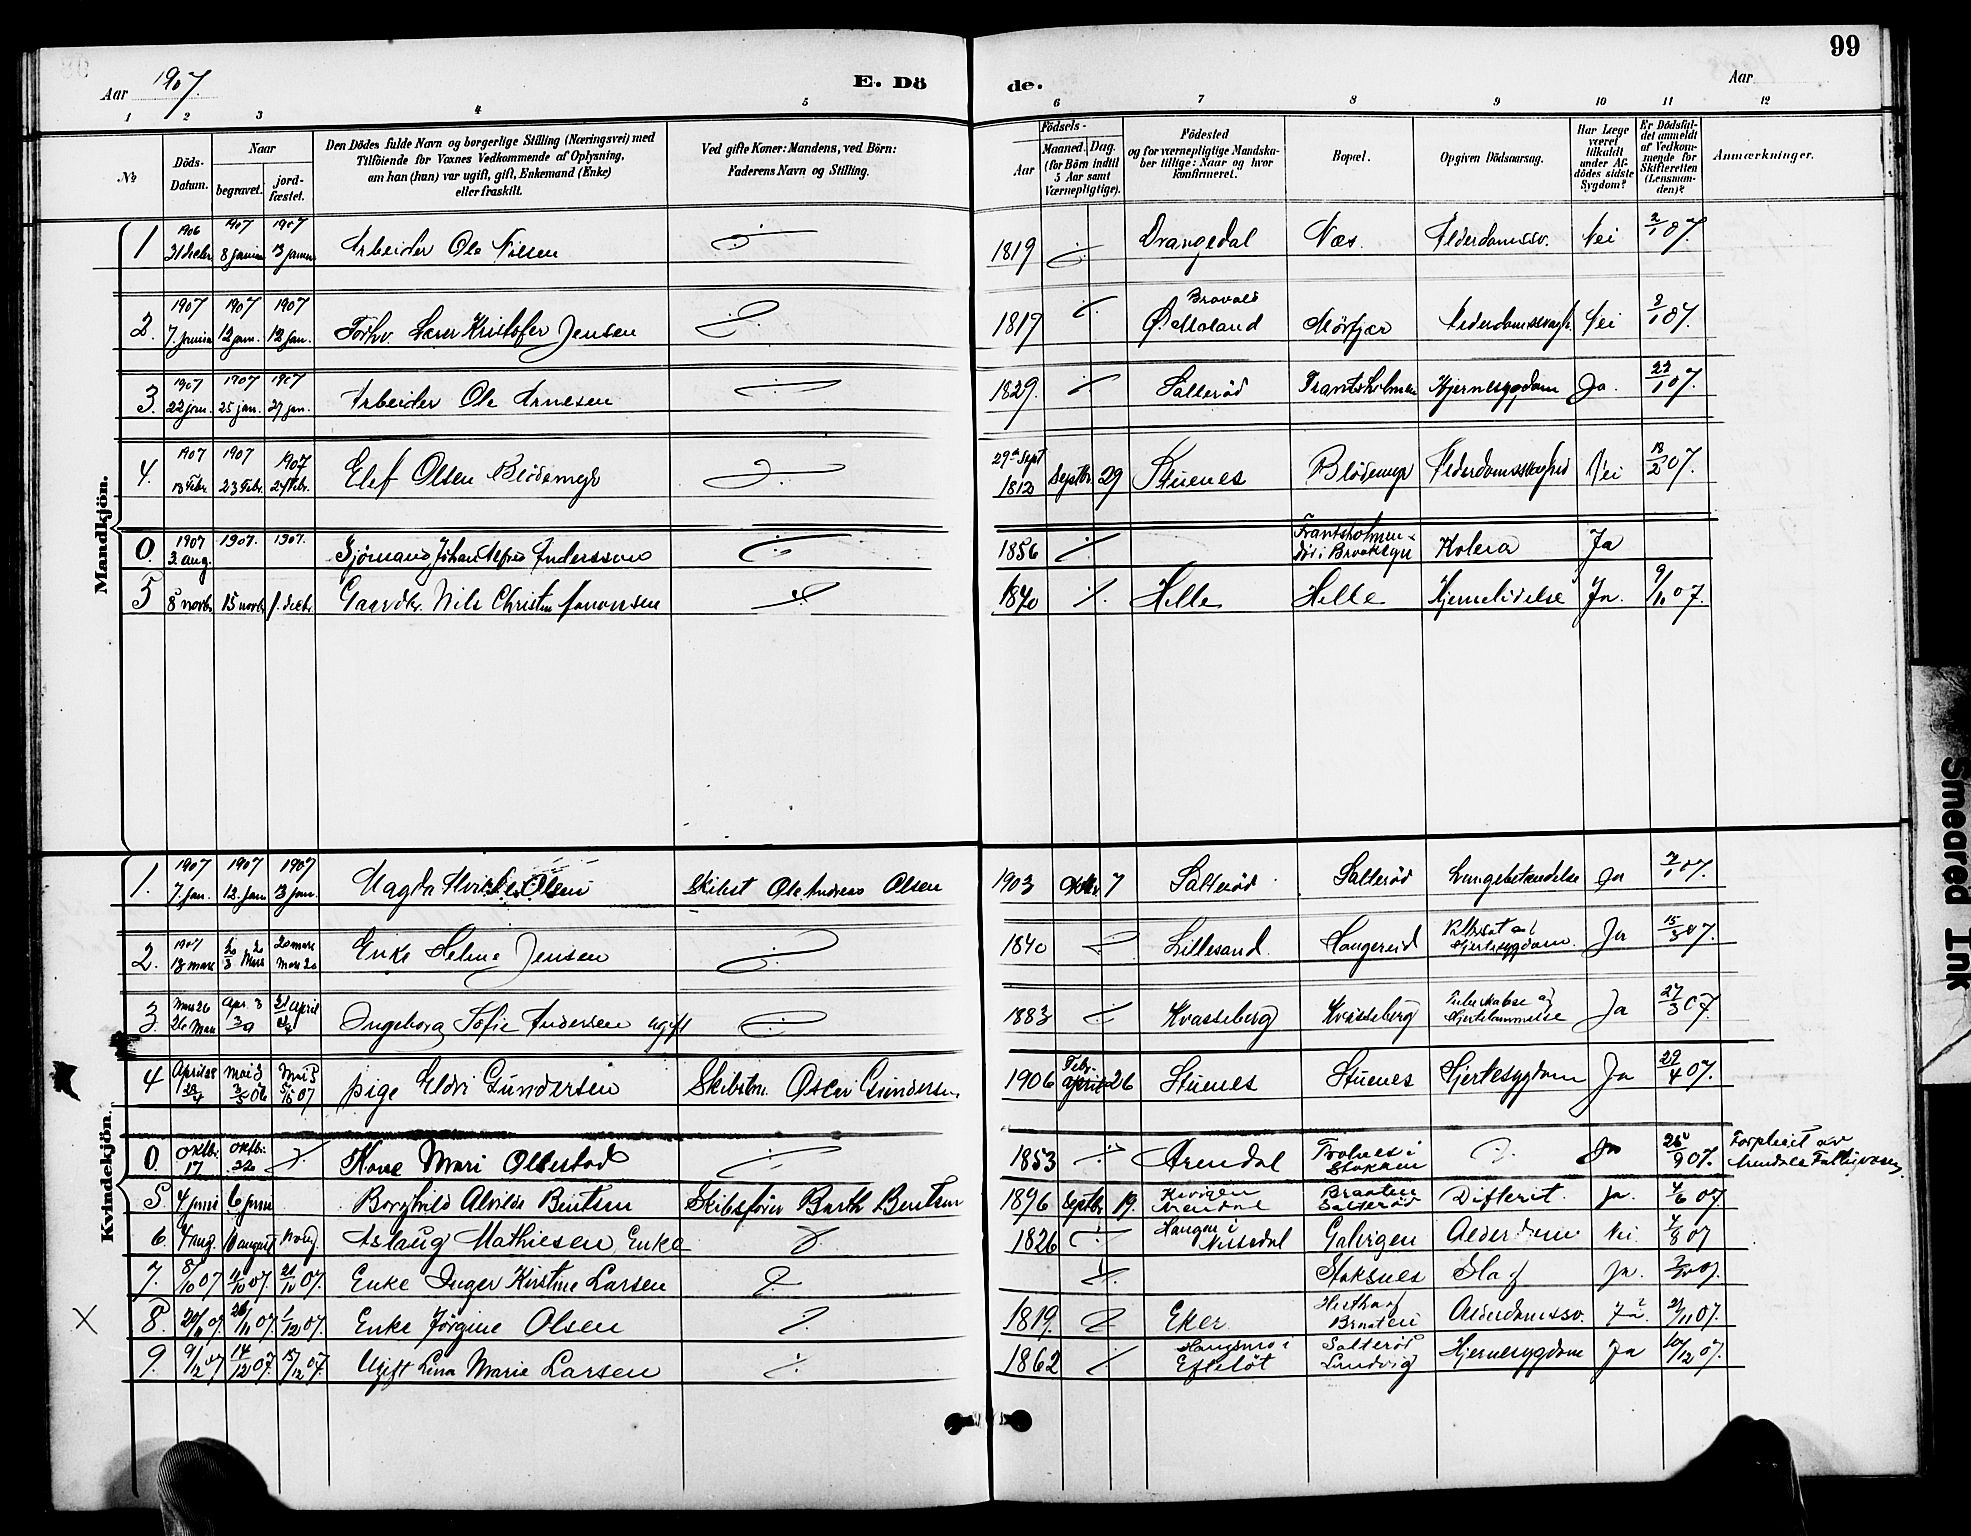 99
Aar 1907. E. Dö de. Aar
1 2 3 4 5 6 7 8 9 10 11 12
No
Döds-Datum.
Naar
begravet.
jord-fæstet.
Den Dödes fulde Navn og borgerlige Stilling (Næringsvei) med
Tilföiende for Voxnes Vedkommende af Oplysning,
om han (hun) var ugift, gift, Enkemand (Enke)
eller fraskilt.
Ved gifte Koner: Mandens, ved Börn:
Faderens Navn og Stilling.
Födsels-
Aar
Maaned. Dag.
(for Börn indtil
5 Aar samt
Værnepligtige).
Födested
og for værnepligtige Mandska-
ber tillige: Naar og hvor
konfirmeret.
Bopæl.
Opgiven Dödsaarsag.
Har Læge
været
tilkaldt
under Af-
dödes sidste
Sygdom?
Er Dödsfal-
det anmeldt
af Vedkom-
mende for
Skifteretten
(Lensman-
den)?
Anmærkninger.
Mandkjön.
1906 1907 1907
1 31 decbr 8 januar 13 januar Arbeider Ole Nilsen 1819 Drangedal Næs Alderdomssv. Nei 2/1 07.
1907 1907 1907
2. 7. januar 12 jan. 12 jan. Forhv. Lærer Kristofer Jensen 1819 Ø. Moland Mörfjær Alderdomssvagh. Nei 07.
1907 1907 1907
3. 22 jan. 25 jan. 27 jan. Arbeider Ole Arnesen 1829. Salteröd Frantsholmen Hjernesygdom Ja. 23/1 07.
1907 1907 1907
29de Sept
4. 18 Febr. 23 Febr. 24 Febr. Elef Olsen Blödemyr 1812 Septbr 29 Stuenes Blödemyr Alderdomssvaghed Nei 18/2 07.
1907 1907. 1907.
Frantsholmen
0. 3. aug. Sjömand Johan Alfred Anderssson 1856 död i Brooklyn Kolera Ja
5 8 novbr 15 novbr 1. decbr. Gaardbr. Nils Christen Aanonsen 1840 Helle Helle Hjernelidelse Ja. 9/11 07.
Kvindekjön.
1907 1907 1907
1. 7. jan. 12. jan 13 jan. Magda Olsen Skibst Ole Andreas Olsen 1903 Oktbr 7 Salteröd Salteröd Lungebetændelse Ja 07.
1907 20 mars
2. 18 mars 20/3 Mars mars 20 Enke Helene Jensen 1840 Lillesand. Haugereid Hjertesygdom. Ja 15/3 07.
Mars 26 Apr. 3 21 April
3. 26 Mars 3/4 Ingeborg Sofie Andersen ugift 1883 Kvasseberg Kvasseberg Tuberkulose og Hjertelammelse Ja 27/3 07.
April 28 mai 3 Mai 5
Febr.
4 28/4 3/5 06 5/5 07 pige Eldri Gundersen Skibstm. Oscar Gundersen 1906 april 26 Stuenes Stuenes Hjertesygdom Ja 29/4 07.
0. oktbr. 17 oktbr. 22 Kone Mari Ollestad 1853 Arendal Trolnes i Stokken Ja 07. Forpleiet av Arendals Fattigvæsen
5 4 juni 6 juni Borghild Alvilde Bentsen Skibsförer Barth Bentsen 1896 Septbr 19. Arendal Braaten Salteröd Difterit. Ja. 4/6 07.
6. 4 aug. 10 august Aslaug Mathiesen, Enke 1826 Haugen i Nissedal Galvigen Alderdom Nei 4/8 07
7. 8/10 07 11/10 07. 21/10 07. Enke Inger Kirstine Larsen Stoksnes Slag Ja. 07.
X
8. 20/11 07 26/11 07. 1/12 07. Enke Jørgine Olsen 1819. Eker Braaten Alderdomssv. Ja 21/11 07.
9. 9/12 07 14/12 07. 15/12 07. Ugift Lina Marie Larsen 1862 Efteløt Salteröd Lundvig Hjernesygdom Ja 10/12 07.
Smeared Ink